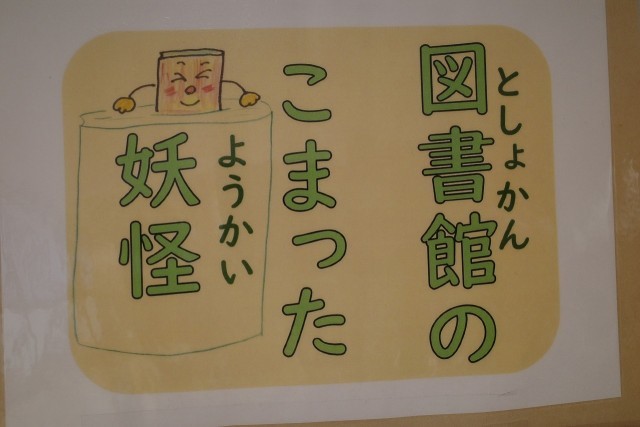 図書館の
としょかん
こまった
妖怪
ようかい